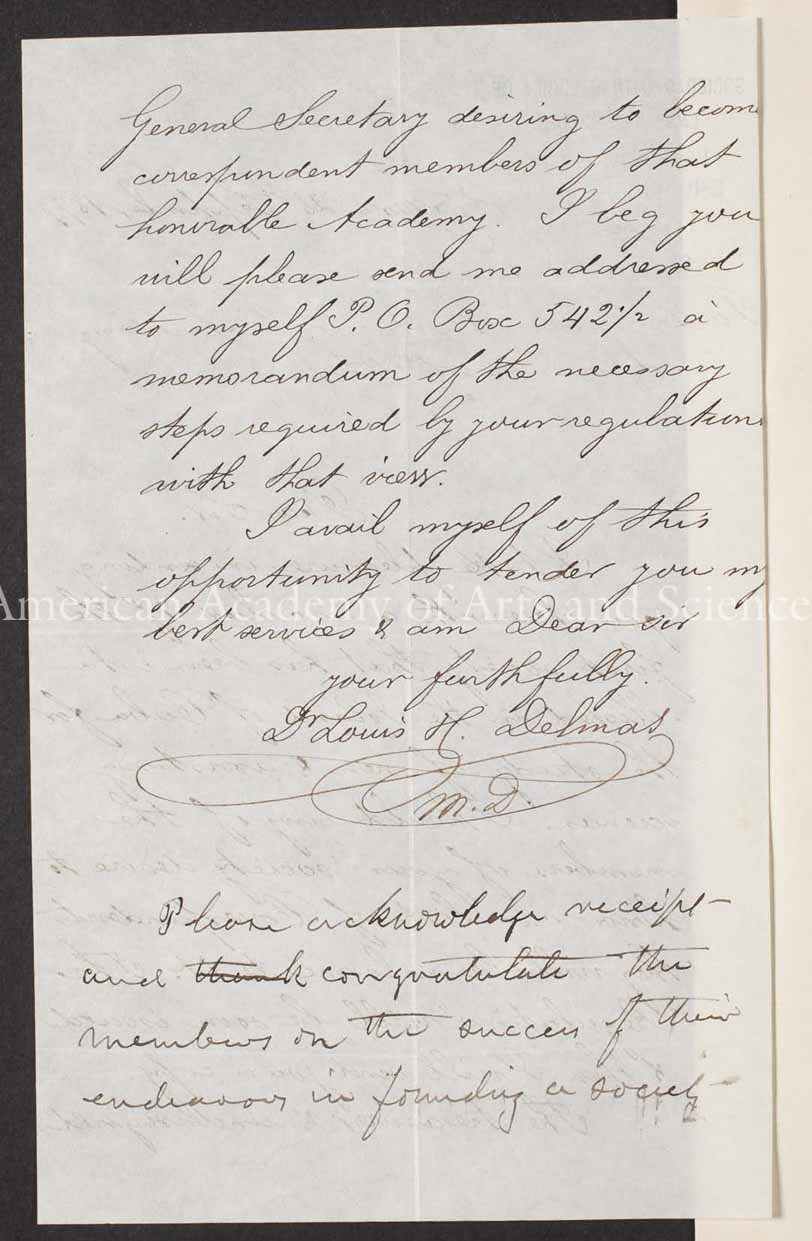 General Secretary desiring to become
correspondent members of that
honorable Academy. I beg you
will please send me addressed
to myself P. O. Box 542 1/2 à
memorandum of the necessary
steps required by your regulations
with that view.
I avail myself of this
opportunity to tender you my
American Academy of Arts and Science
best services & am Dear sir
your faithfully.
Dr Louis H. Delmas
M.D.
Please acknowledge receipt
and thank congratulate the
members on the success of their
endeavors in founding a society